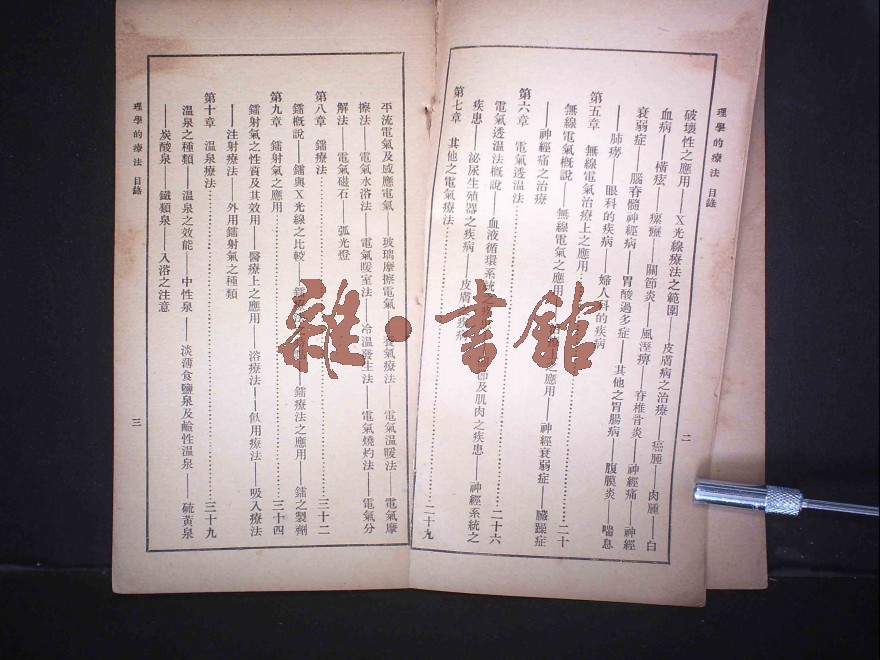 理學的療法 目錄
二
破壞性之應用——X光線療法之範圍——皮膚病之治療——癌腫——肉腫——白
血病——橫痃——瘰癧——關節炎——風溼痹——脊椎骨炎——神經痛——神經
衰弱症——腦脊髓神經病——胃酸過多症——其他之胃腸病——腹膜炎——喘息
——肺癆——眼科的疾病——婦人科的疾病
第五章 無線電氣治療上之應用…………二十
無線電氣概說——無線電氣之應用——治療上之應用——神經衰弱症——臟躁症
——神經痛之治療
第六章 電氣透溫法…………二十六
電氣透溫法概說——血液循環系統之疾患——節及肌肉之疾患——神經系統之
疾患——泌尿生殖器之疾病——皮膚之疾病
第七章 其他之電氣療法…………二十九
平流電氣及感應電氣——玻璃摩擦電氣——氣療法——電氣溫暖法——電氣摩
擦法——電氣水浴法——電氣暖室法——冷溫發生法——電氣燒灼法——電氣分
解法——電氣磁石——弧光燈
第八章 鐳療法…………三十二
鐳概說——鐳與X光線之比較——鐳——鐳療法之應用——鐳之製劑
第九章 鐳射氣之應用…………三十四
鐳射氣之性質及其效用——醫療上之應用——浴療法——飲用療法——吸入療法
——注射療法——外用鐳射氣之種類
第十章 溫泉療法…………三十九
溫泉之種類——溫泉之效能——中性泉——淡薄食鹽泉及鹼性溫泉——硫黃泉
——炭酸泉——鐵類泉——入浴之注意
理學的療法 目錄
三
雜·書館